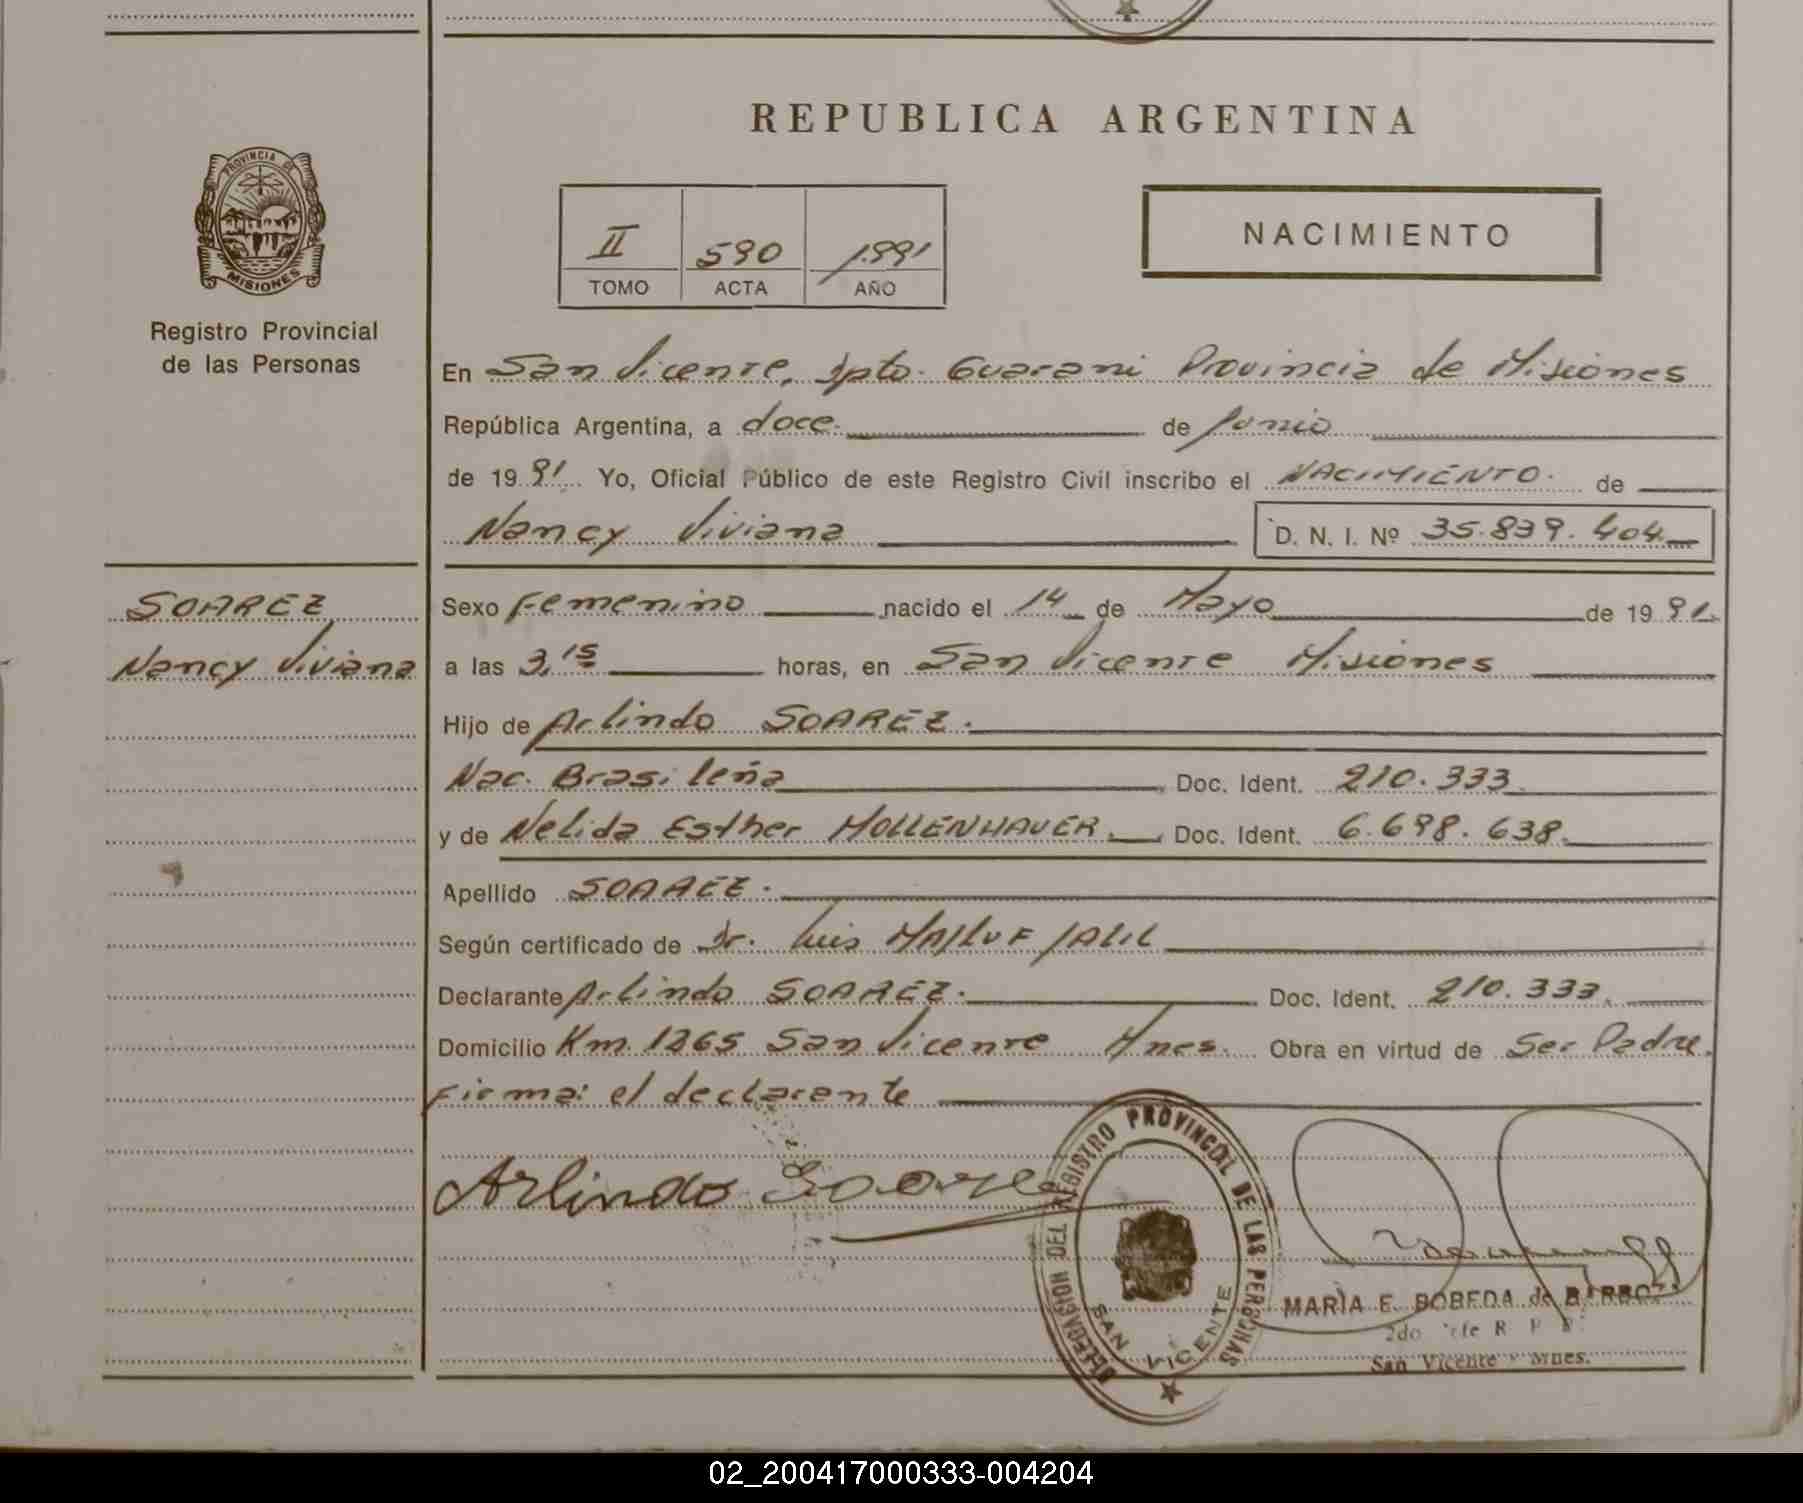 REPUBLICA ARGENTINA
PROVINCIA DE
MISIONES
Registro Provincial
de las Personas
II 590 1.991
TOMO ACTA AÑO
NACIMIENTO
En San Vicente, Dpto. Guarani Provincia de Misiones
República Argentina, a doce. de Junio
de 1991. Yo, Oficial Público de este Registro Civil inscribo el NACIMIENTO. de
Nancy Viviana D. N. I. Nº 35.839.404
SOAREZ
Nancy Viviana
Sexo Femenino nacido el 14 de Mayo de 1991.
a las 3,15 horas, en San Vicente Misiones
Hijo de Arlindo SOAREZ.
Nac. Brasileña Doc. Ident. 210.333
y de Nelida Esther MOLLENHAUER. Doc. Ident. 6.698.638.
Apellido SOAREZ.
Según certificado de Dr. Luis MAJLUF JALIL
Declarante Arlindo SOAREZ. Doc. Ident. 210.333.
Domicilio Km. 1265 San Vicente Mnes. Obra en virtud de Ser Padre.
Firma: el declarante
Arlindo Soarez
DELEGACION DEL REGISTRO PROVINCIAL DE LAS PERSONAS
SAN VICENTE
MARIA E. BOBEDA de
2do Jefe R. P. P.
San Vicente - Mnes.
02_200417000333-004204